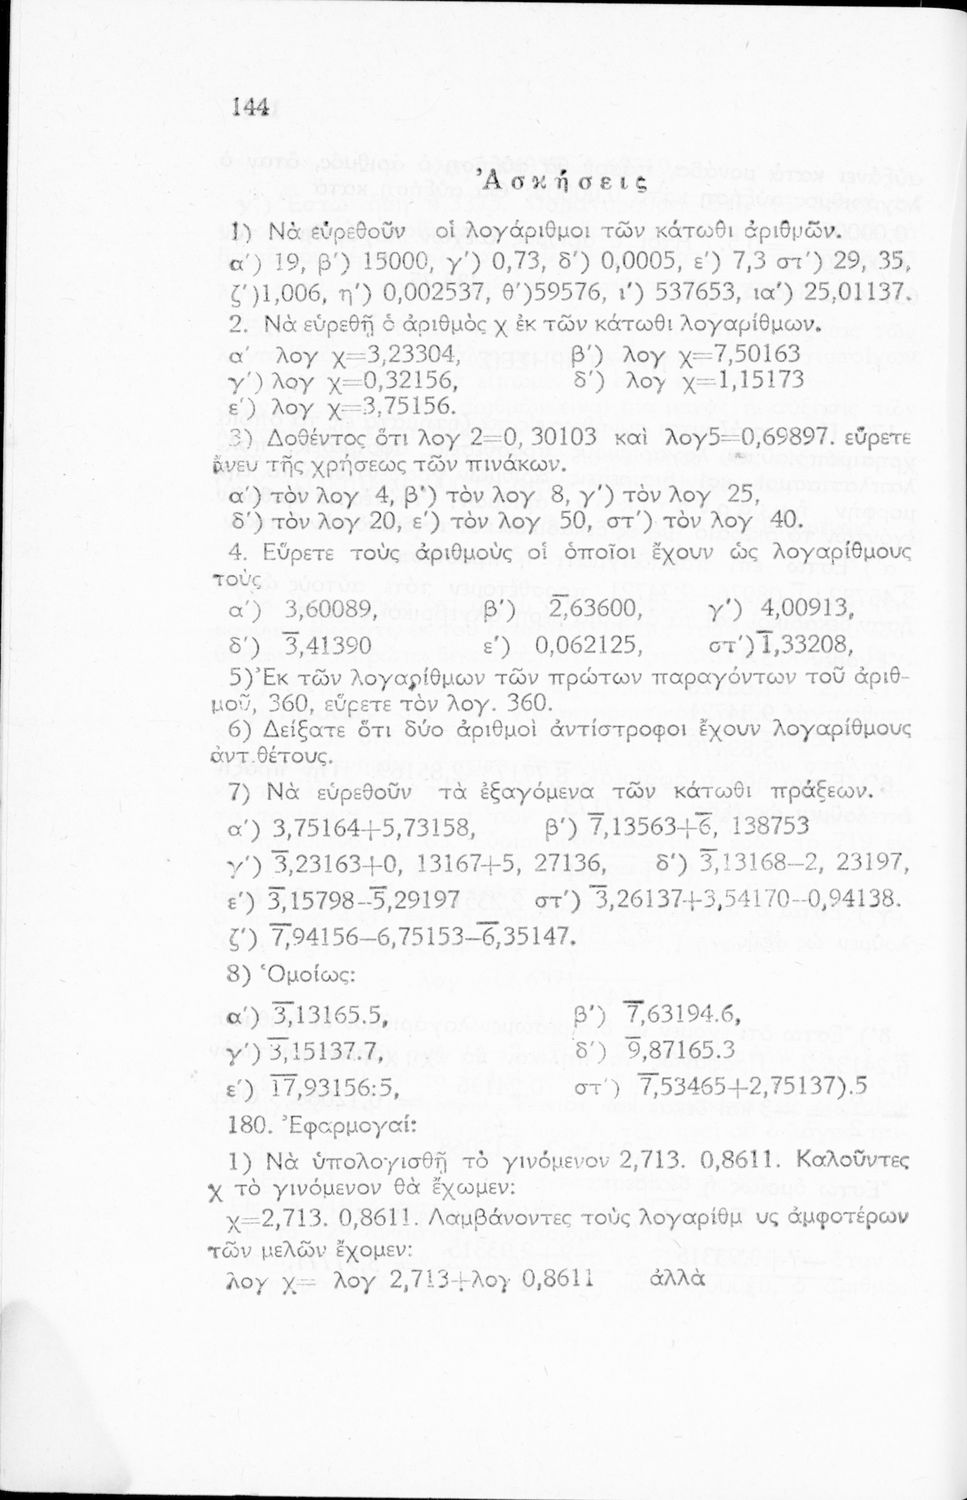 144
Ἀσκήσεις
1) Νὰ εὑρεθοῦν οἱ λογάριθμοι τῶν κάτωθι ἀριθμῶν.
α') 19, β') 15000, γ') 0,73, δ') 0,0005, ε') 7,3 στ') 29, 35,
ζ')1,006, η') 0,002537, θ')59576, ι') 537653, ια') 25,01137.
2. Νὰ εὑρεθῇ ὁ ἀριθμὸς χ ἐκ τῶν κάτωθι λογαρίθμων.
α' λογ χ=3,23304, β') λογ χ=7,50163
γ') λογ χ=0,32156, δ') λογ χ=1,15173
ε') λογ χ=3,75156.
3) Δοθέντος ὅτι λογ 2=0, 30103 καὶ λογ5=0,69897. εὕρετε
ἄνευ τῆς χρήσεως τῶν πινάκων.
α') τὸν λογ 4, β') τὸν λογ 8, γ') τὸν λογ 25,
δ') τὸν λογ 20, ε') τὸν λογ 50, στ') τὸν λογ 40.
4. Εὕρετε τοὺς ἀριθμοὺς οἱ ὁποῖοι ἔχουν ὡς λογαρίθμους
τοὺς
α') 3,60089, β') 2̅,63600, γ') 4,00913,
δ') 3̅,41390 ε') 0,062125, στ') 1̅,33208,
5) Ἐκ τῶν λογαρίθμων τῶν πρώτων παραγόντων τοῦ ἀριθ-
μοῦ, 360, εὕρετε τὸν λογ. 360.
6) Δείξατε ὅτι δύο ἀριθμοὶ ἀντίστροφοι ἔχουν λογαρίθμους
ἀντ.θέτους.
7) Νὰ εὑρεθοῦν τὰ ἐξαγόμενα τῶν κάτωθι πράξεων.
α') 3,75164+5,73158, β') 7̅,13563+6̅, 138753
γ') 3̅,23163+0, 13167+5, 27136, δ') 3̅,13168—2, 23197,
ε') 3̅,15798—5̅,29197 στ') 3̅,26137+3,54170—0,94138.
ζ') 7̅,94156—6,75153—6̅,35147.
8) Ὁμοίως:
α') 3̅,13165.5, β') 7̅,63194.6,
γ') 3̅,15137.7, δ') 9̅,87165.3
ε') 1̅7̅,93156:5, στ') 7̅,53465+2,75137).5
180. Ἐφαρμογαί:
1) Νὰ ὑπολογισθῇ τὸ γινόμενον 2,713. 0,8611. Καλοῦντες
χ τὸ γινόμενον θὰ ἔχωμεν:
χ=2,713. 0,8611. Λαμβάνοντες τοὺς λογαρίθμ υς ἀμφοτέρων
τῶν μελῶν ἔχομεν:
λογ χ= λογ 2,713+λογ 0,8611 ἀλλὰ